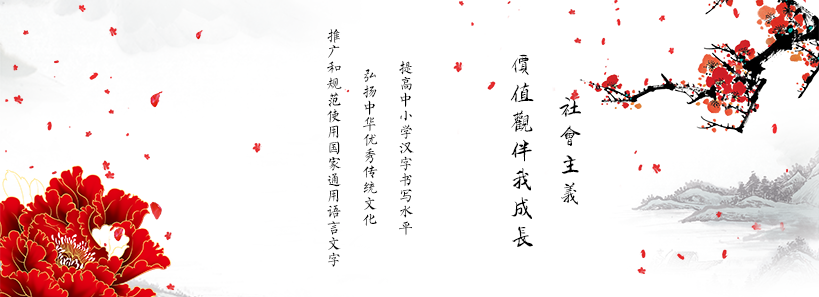 社會主義
價值觀伴我成長
提高中小学汉字书写水平
弘扬中华优秀传统文化
推广和规范使用国家通用语言文字